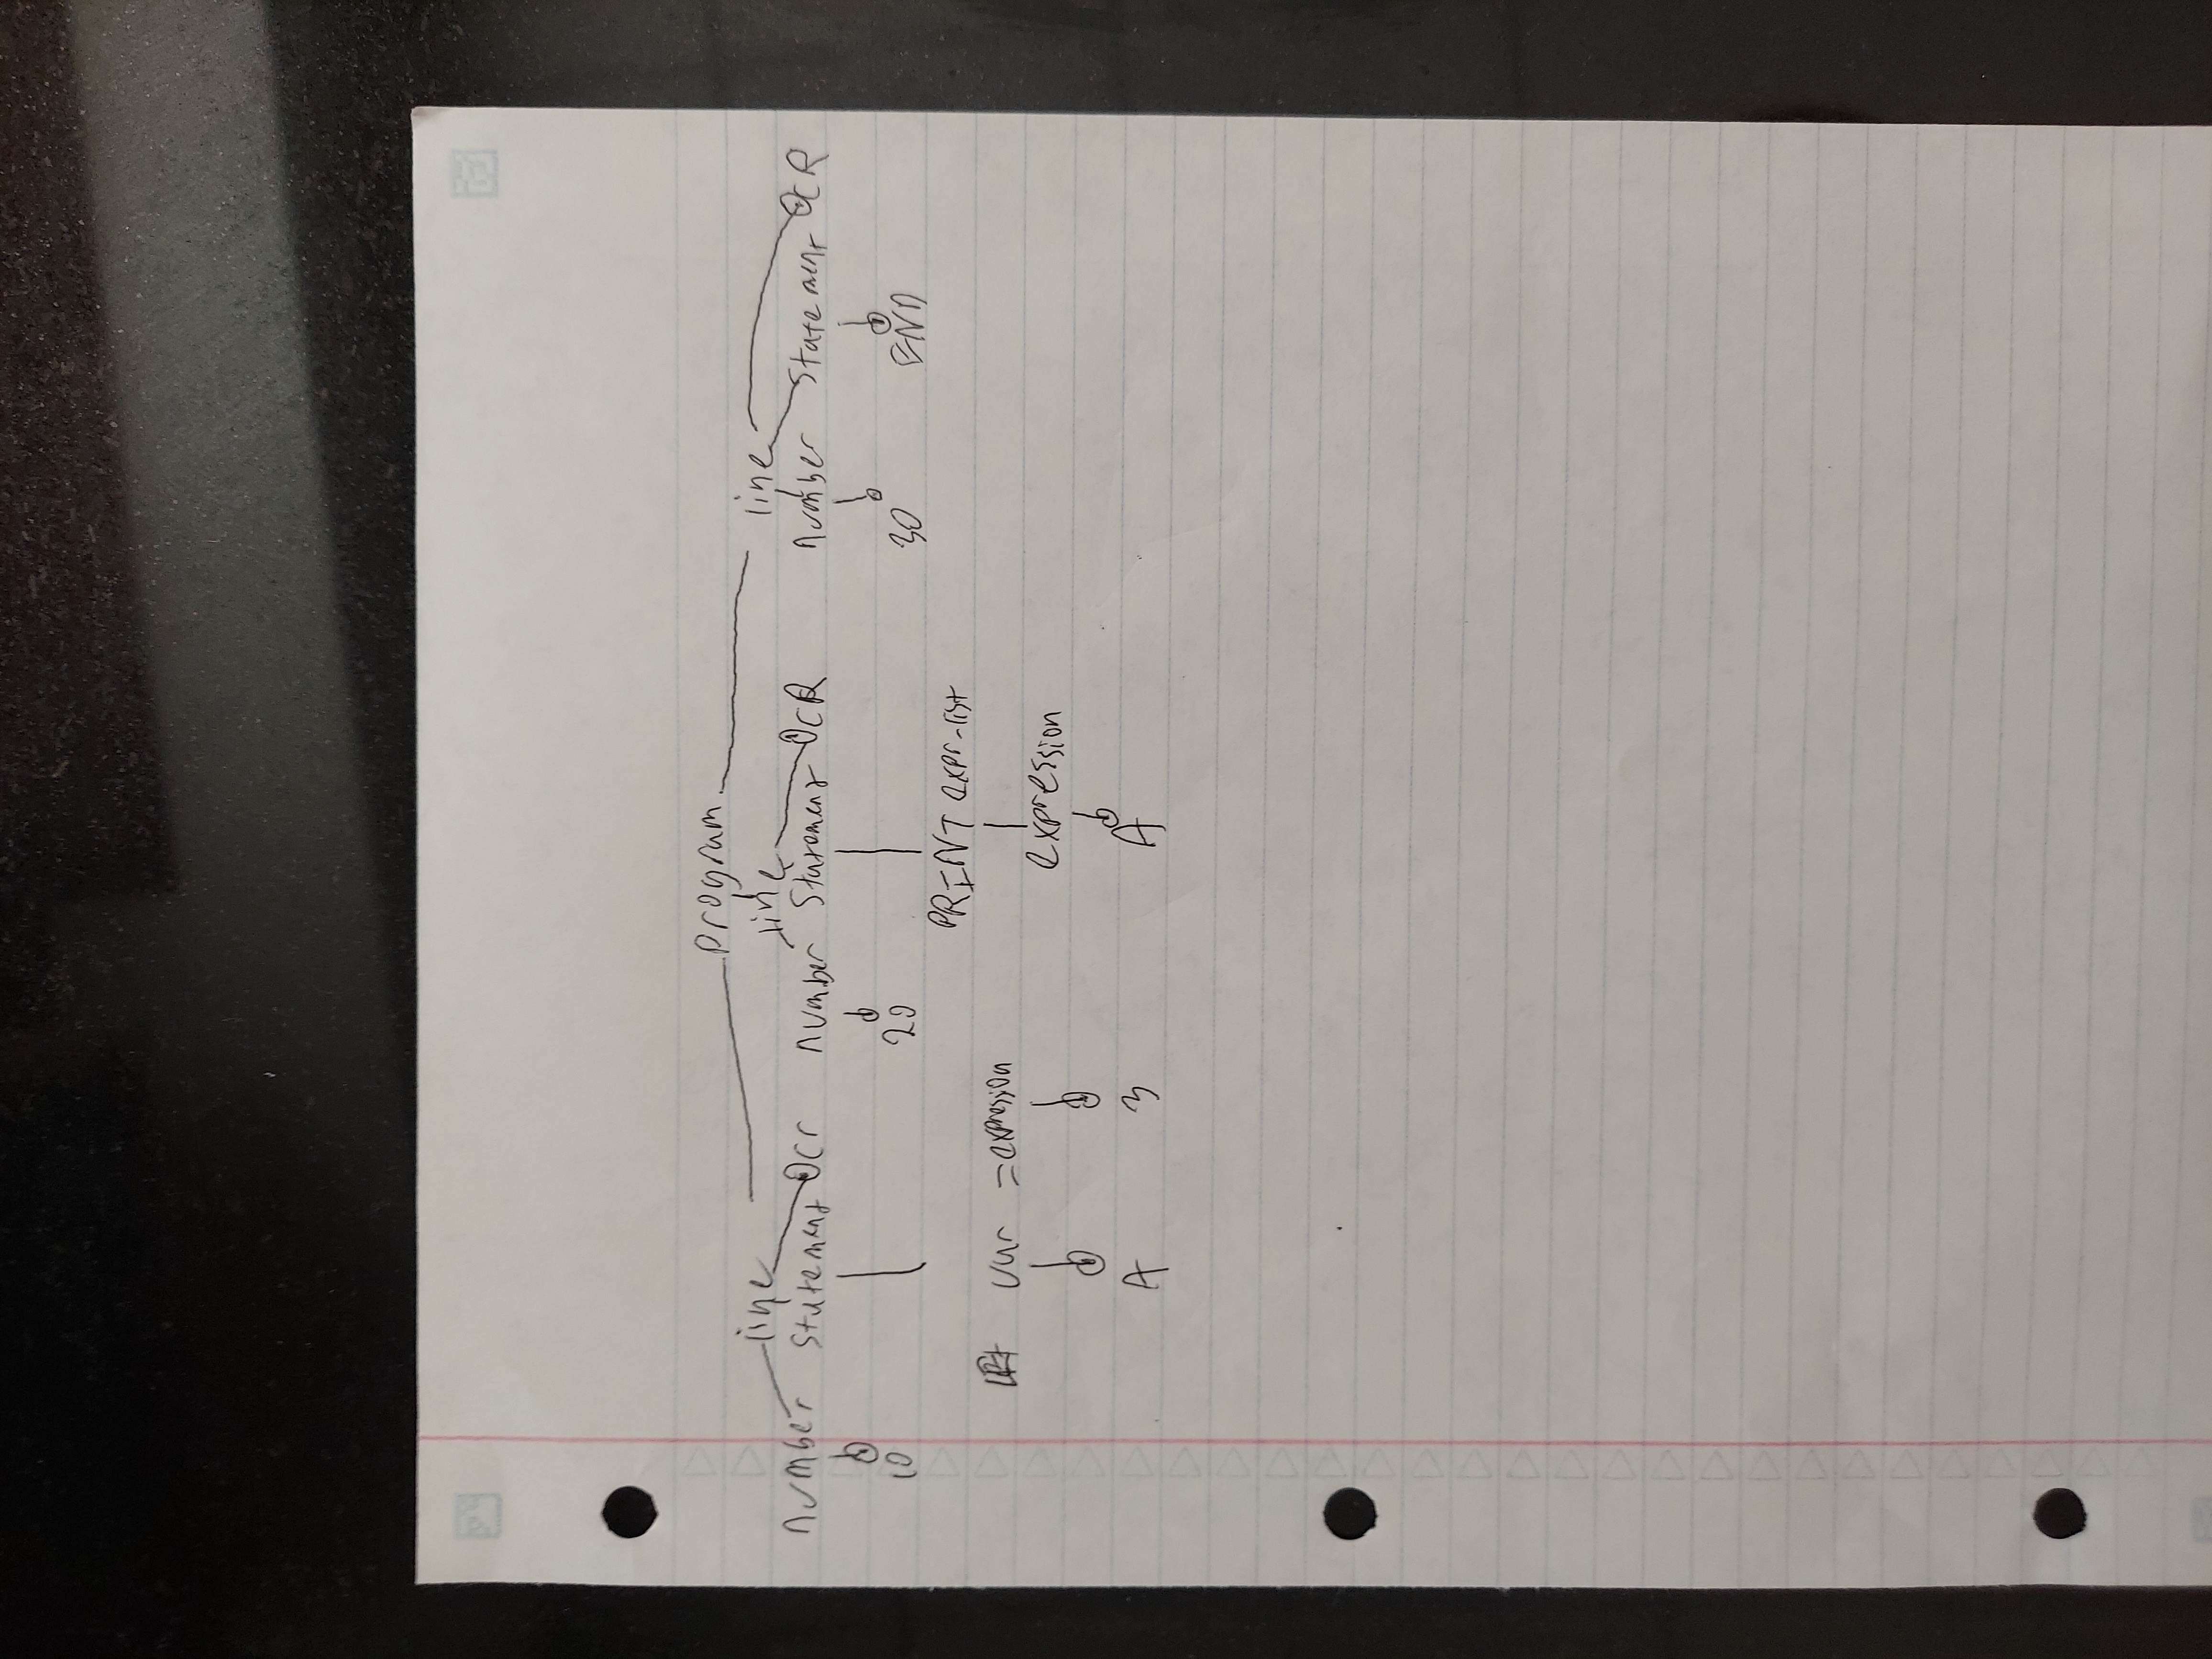 program
line line line
number statement cr number statement CR number statement CR
10 20 30 END
PRINT expr-list
LET var = expression
expression
A 3 A